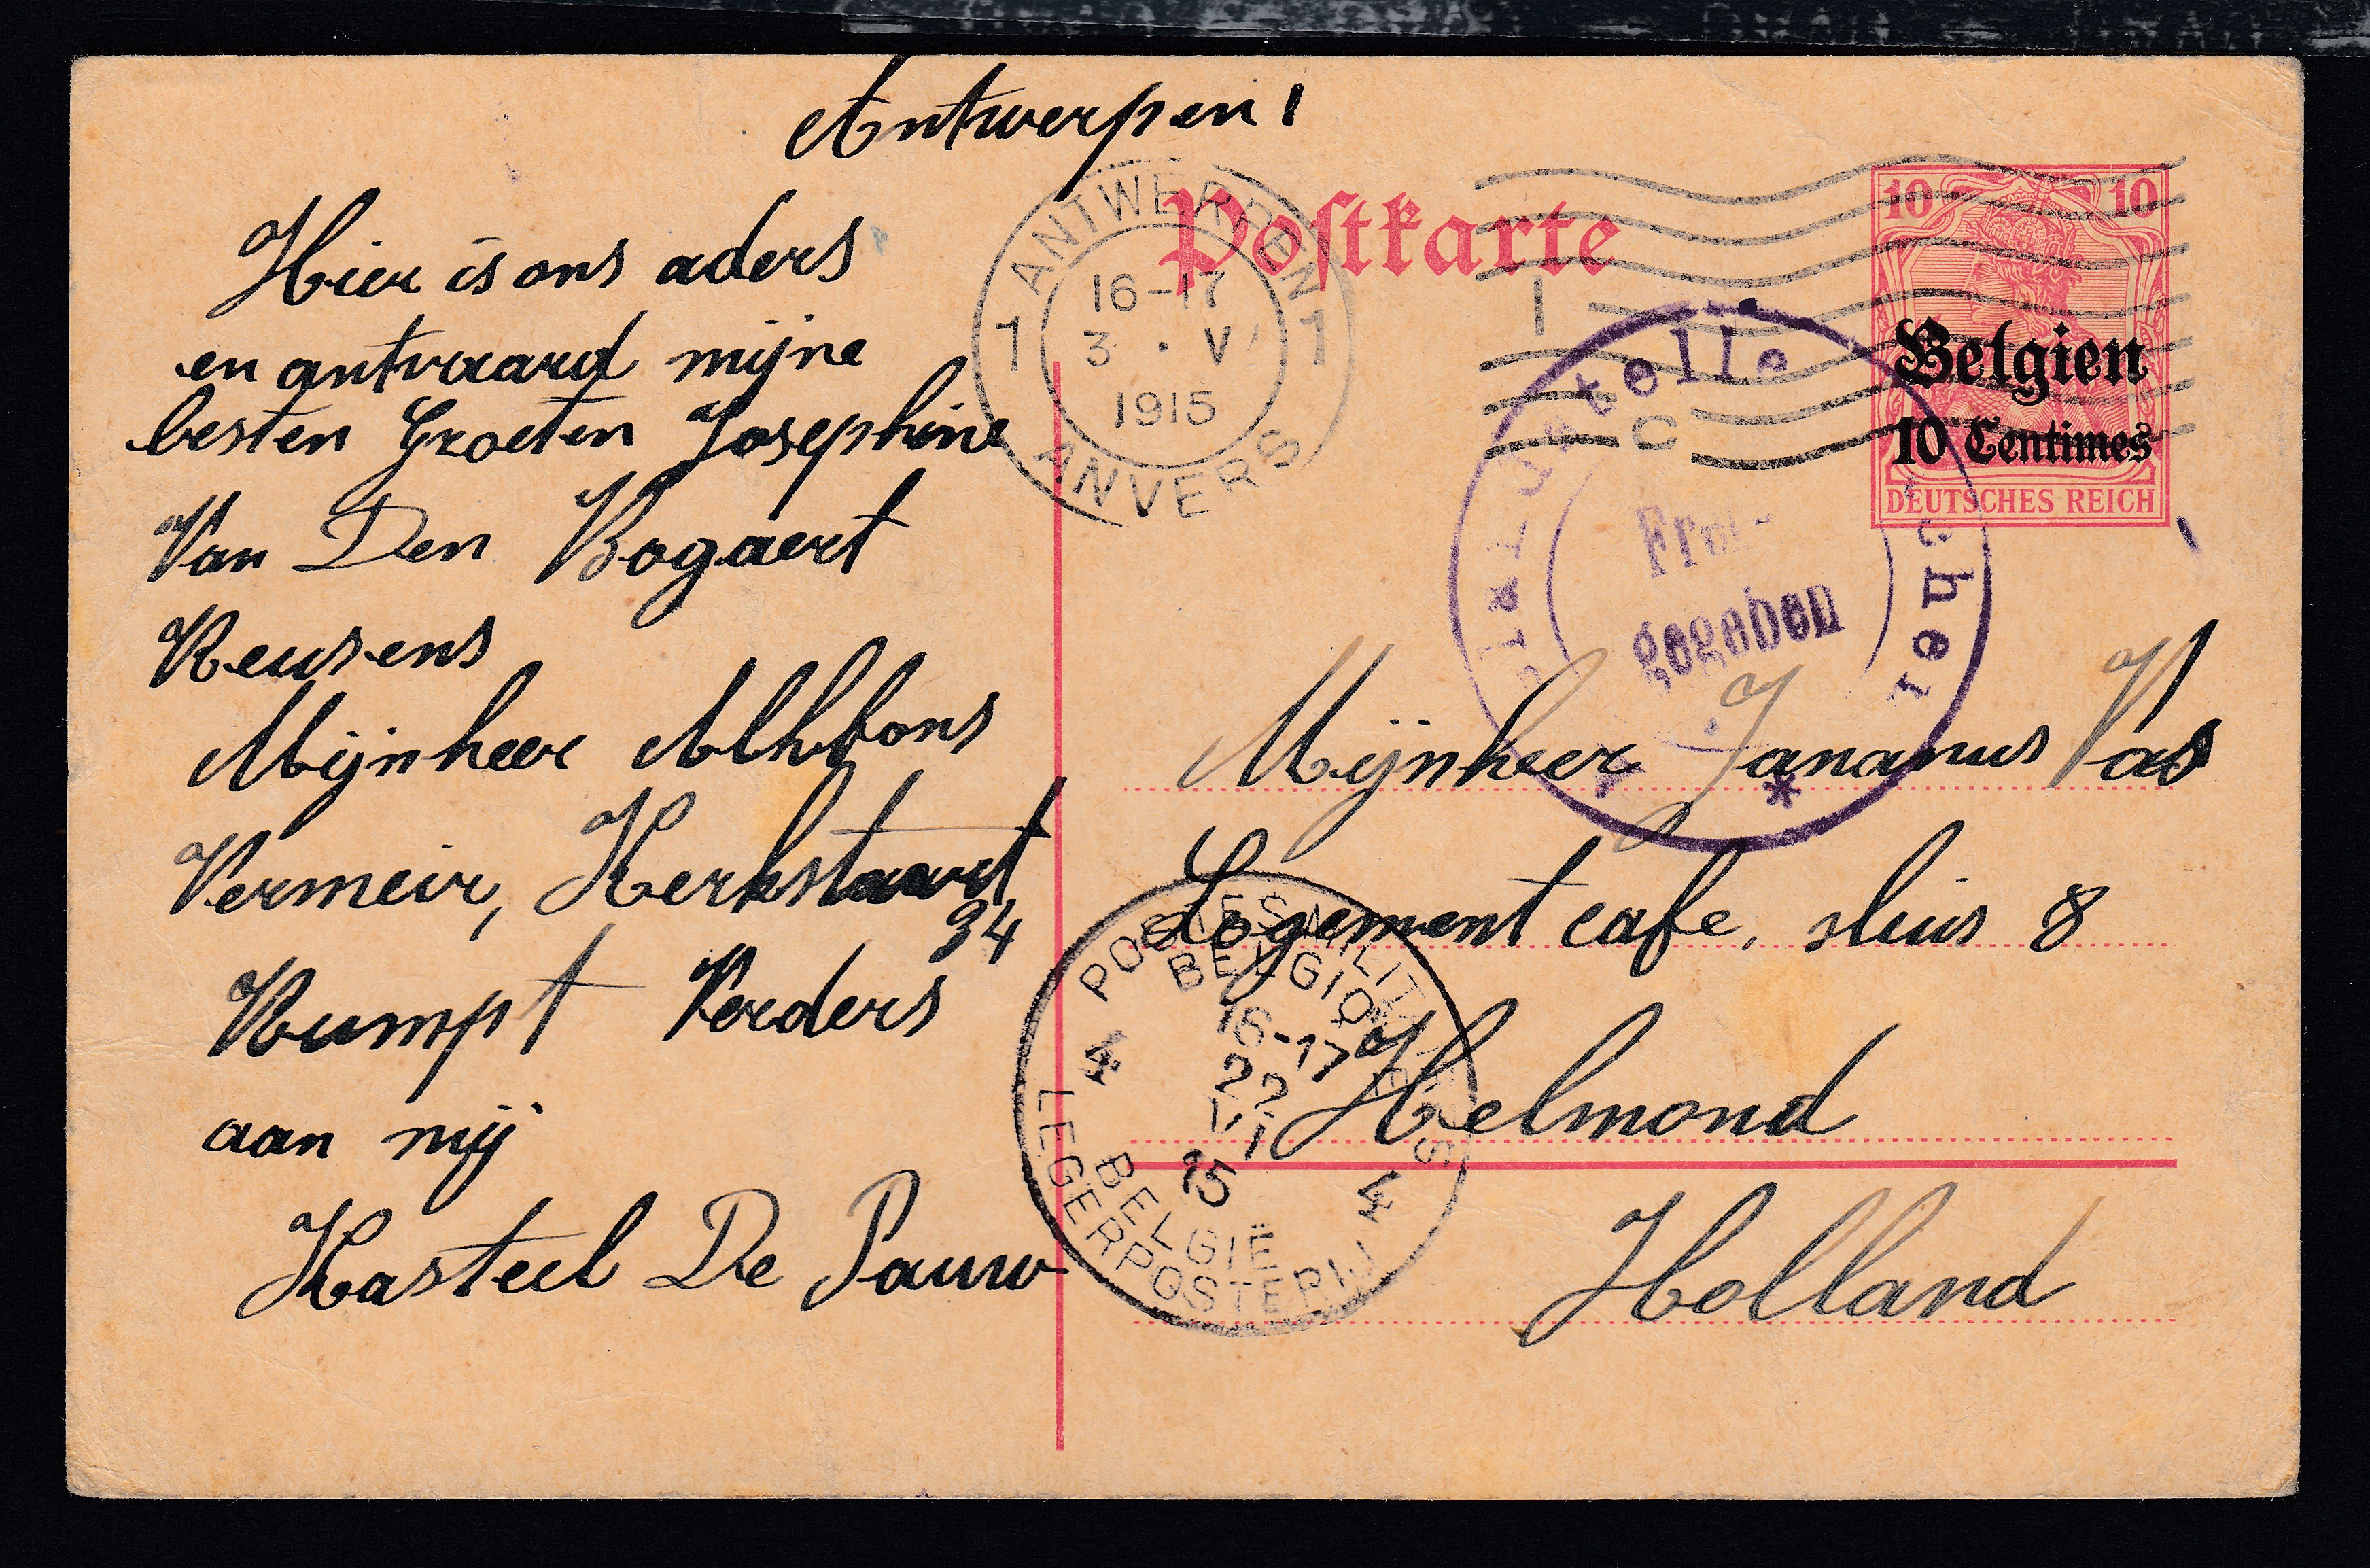 Antwerpen 1
Hier is ons aders
en antvaard mijne
besten Groeten Josephine
Van Den Bogaert
Reusens
Mijnheer
Vermeir, Kerkstaart
34
Rumpt Verders
aan mij
Kasteel De Pauw
Postkarte
ANTWERPEN
1 16-17 1
3 · V
1915
ANVERS
10 10
Belgien
10 Centimes
DEUTSCHES REICH
gegeben
Mijnheer Jananus Vas
Logement cafe, sluis 8
Helmond
Holland
POSTES MILITAIRES
BELGIQUE
16-17
4 22 4
VI
15
BELGIË
LEGERPOSTERIJ